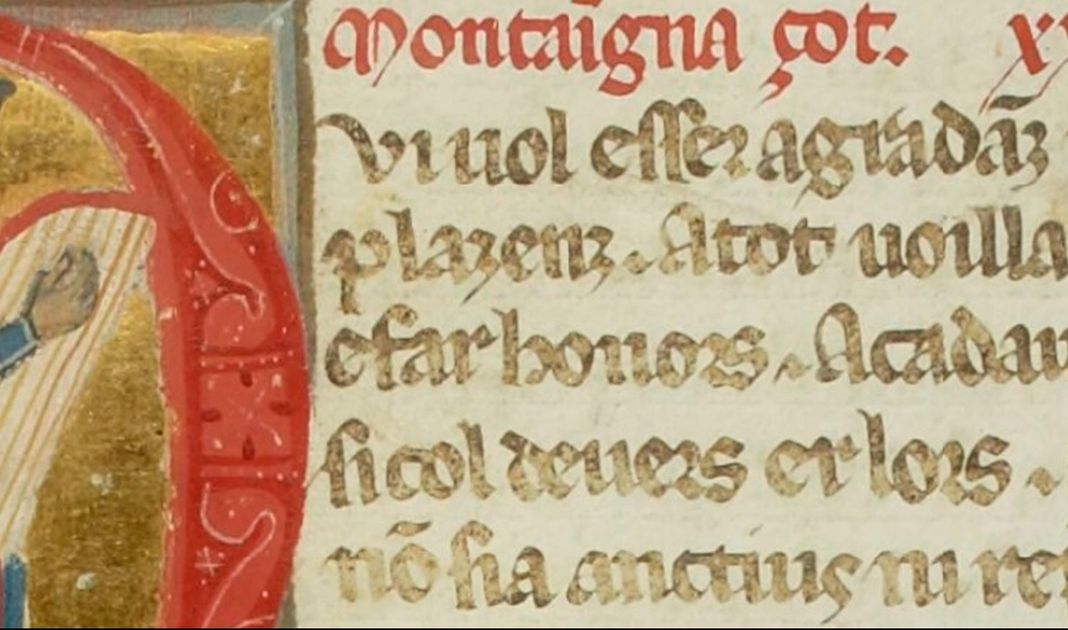 Montaigna çot. xv
Vi uol esser agradãz
plazenz. Atot uoilla
e far honors. A cadau
si col deuers er lors.
nõ sia anctius ni re